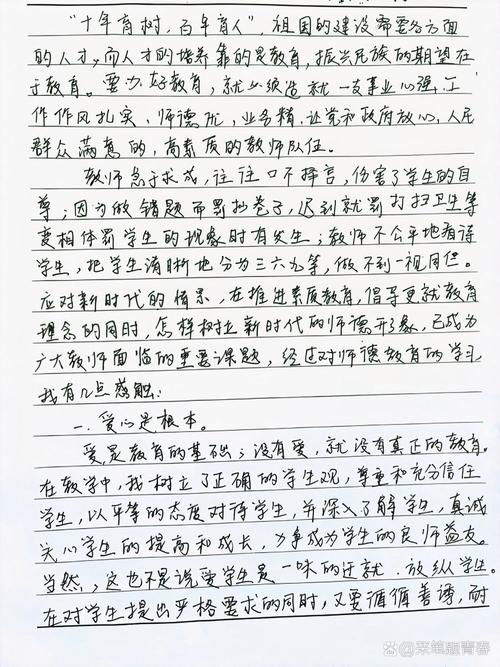 "十年育树，百年育人"，祖国的建设需要各方面
的人才，而人才的培养靠的是教育，振兴民族的期望在
于教育。要办好教育，就必须造就一支事业心强，工
作作风扎实、师德优，业务精，让党和政府放心，人民
群众满意的，高素质的教师队伍。
教师急于求成，往往口不择言，伤害了学生的自
尊；因为做错题而罚抄卷子，迟到就罚打扫卫生等
变相体罚学生的现象时有发生；教师不公平地看待
学生，把学生清晰地分为三六九等，做不到一视同仁。
应对新时代的情景，在推进素质教育，倡导更就教育
理念的同时，怎样树立新时代的师德形象，已成为
广大教师面临的重要课题，经过对师德教育的学习
我有几点感触：
一．爱心是根本。
爱是教育的基础；没有爱，就没有真正的教育。
在教学中，我树立了正确的学生观，尊重和充分信任
学生，以平等的态度对待学生，并深入了解学生，真诚
关心学生的提高和成长，力争成为学生的良师益友。
当然，这也不是说爱学生是一味的迁就．放纵学生。
在对学生提出严格要求的同时，又要循循善诱，耐
百家号/菜笔题青春